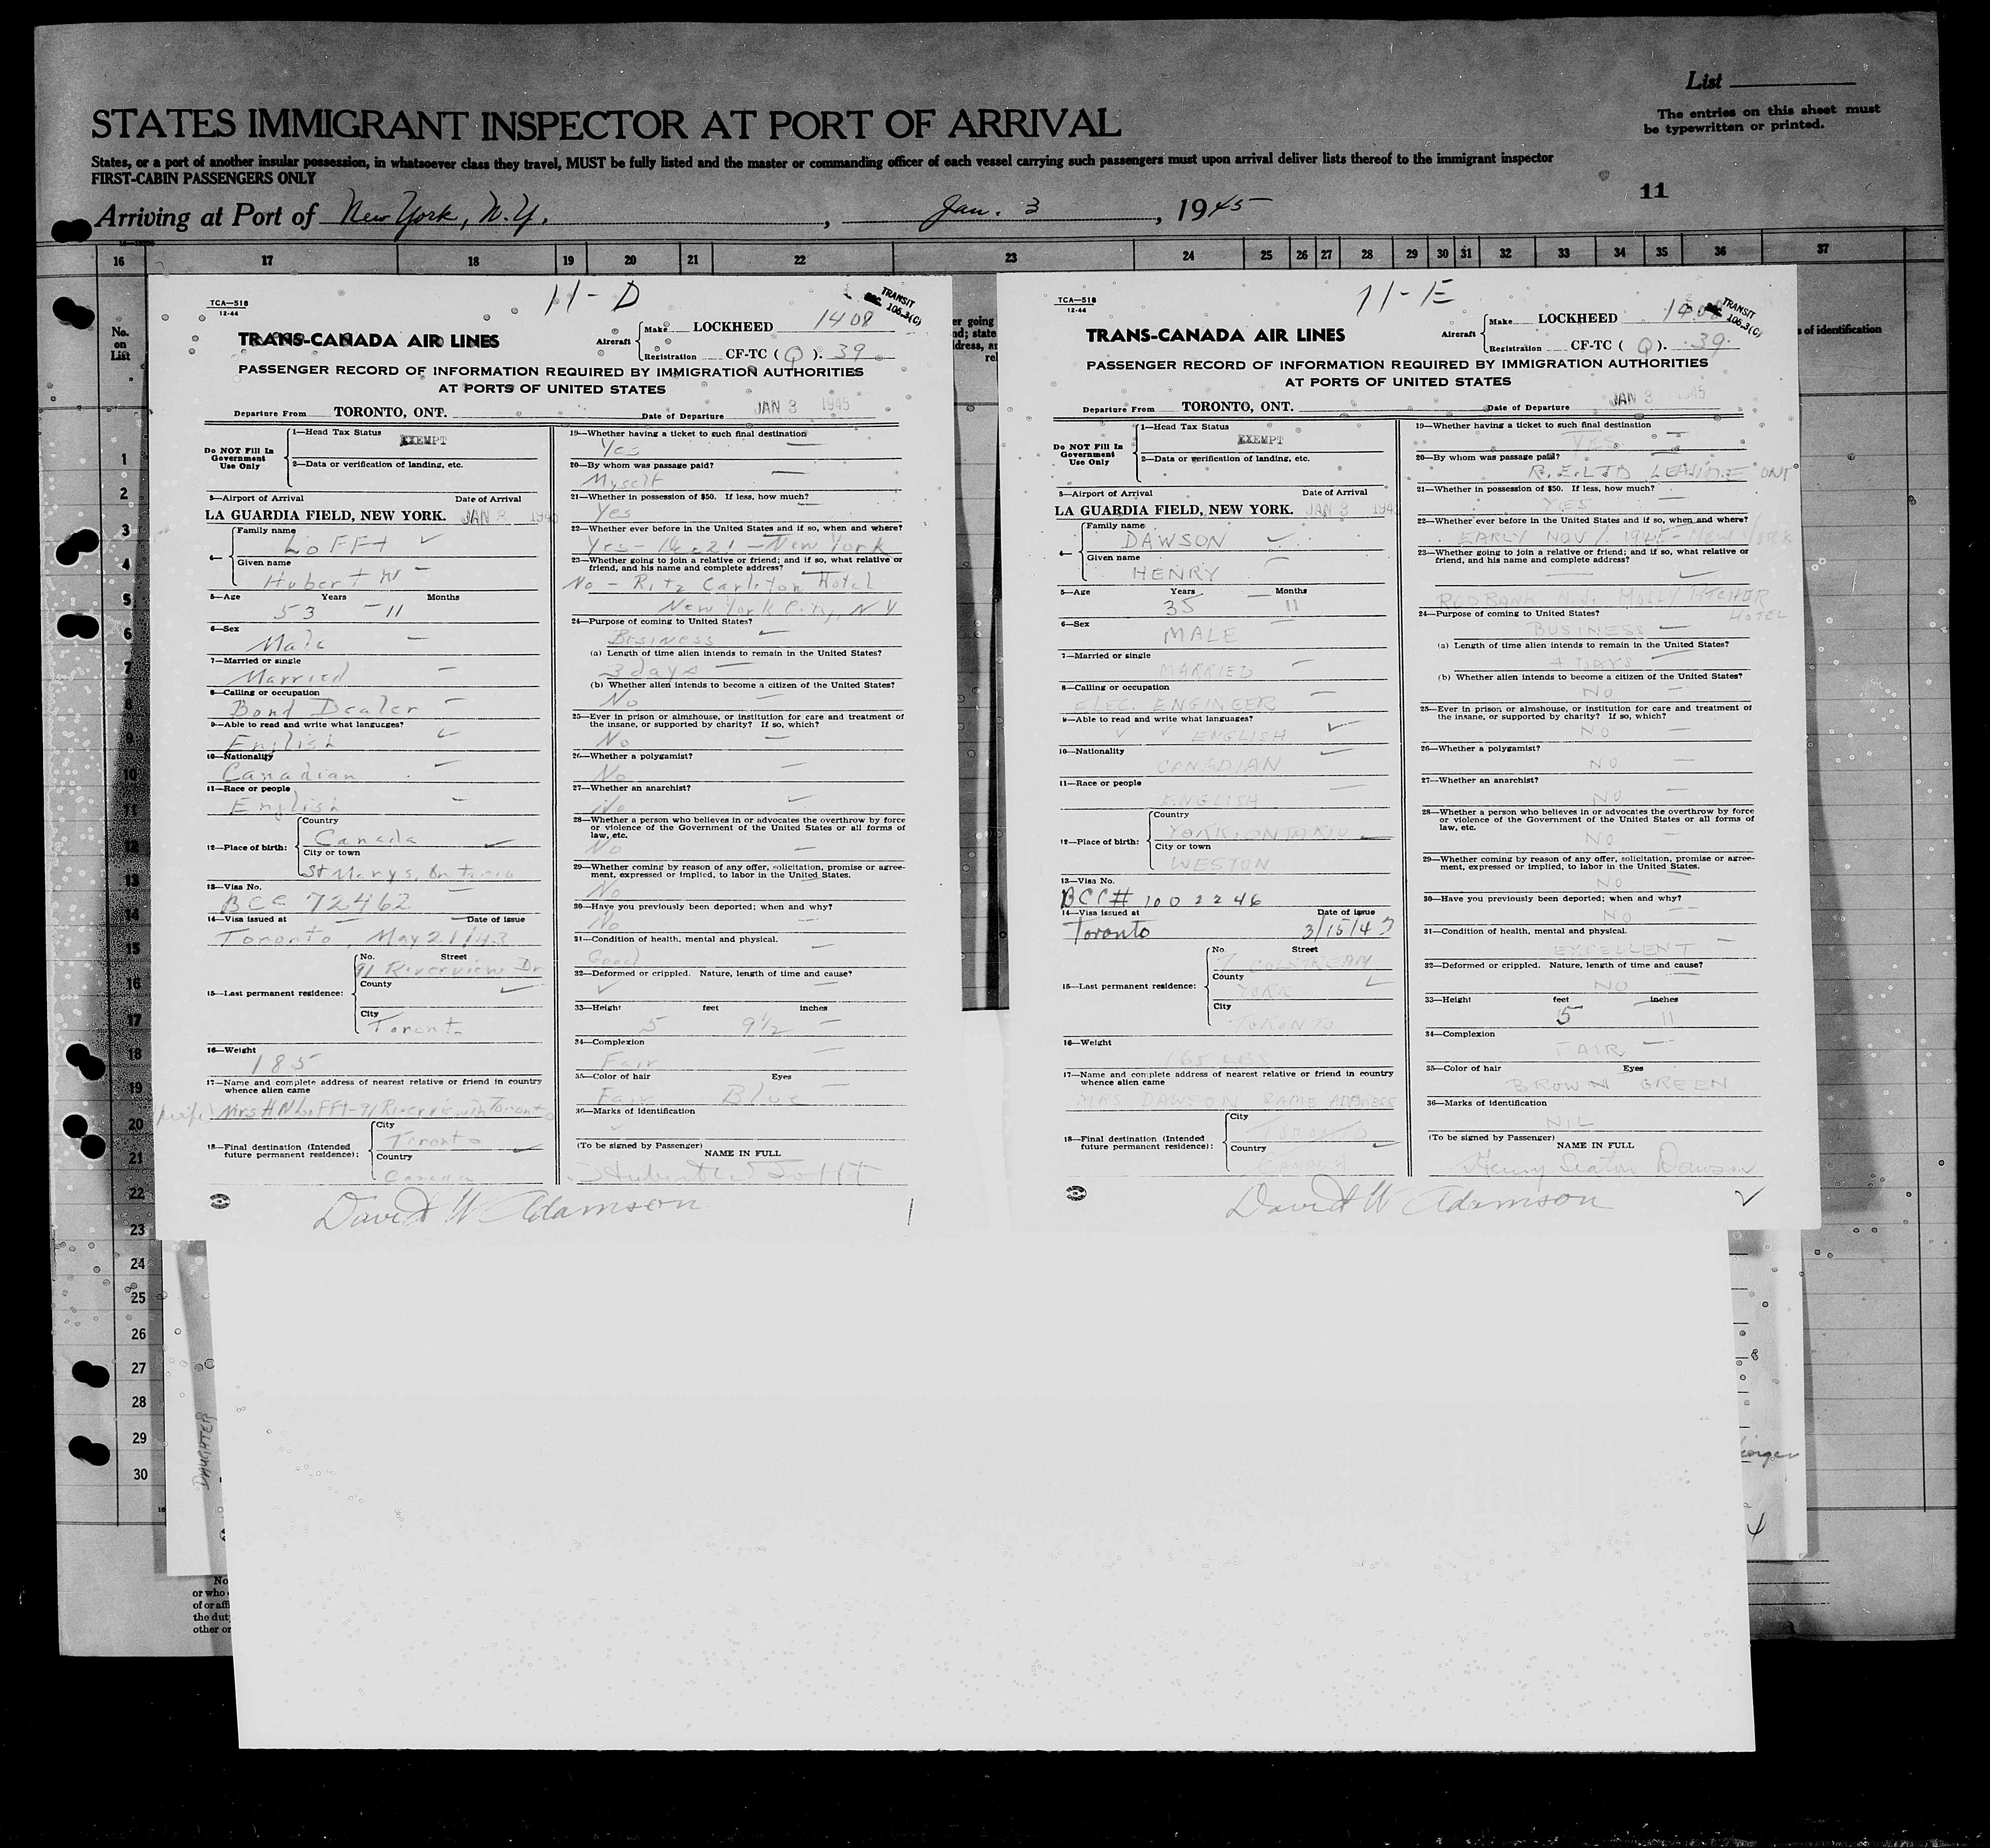 List
The entries on this sheet must
be typewritten or printed.
STATES IMMIGRANT INSPECTOR AT PORT OF ARRIVAL
States, or a port of another insular possession, in whatsoever class they travel, MUST be fully listed and the master or commanding officer of each vessel carrying such passengers must upon arrival deliver lists thereof to the immigrant inspector
FIRST-CABIN PASSENGERS ONLY
11
Arriving at Port of New York, N.Y., Jan. 3, 1945
16 17 18 19 20 21 22 23 24 25 26 27 28 29 30 31 32 33 34 35 36 37
No.
on
List
1
2
3
4
5
6
7
8
9
10
11
12
13
14
15
16
17
18
19
20
21
22
23
24
25
26
27
28
29
30
11-D
TCA—518
12-44
TRANSIT
SEC. 106.3(C)
TRANS-CANADA AIR LINES
Aircraft
Make LOCKHEED 1408
Registration CF-TC (Q). 39
PASSENGER RECORD OF INFORMATION REQUIRED BY IMMIGRATION AUTHORITIES
AT PORTS OF UNITED STATES
Departure From TORONTO, ONT. Date of Departure JAN 3 1945
Do NOT Fill In
Government
Use Only
1—Head Tax Status EXEMPT
2—Data or verification of landing, etc.
3—Airport of Arrival Date of Arrival
LA GUARDIA FIELD, NEW YORK. JAN 3 194
4—
Family name
LOFFt
Given name
Hubert W
5—Age Years Months
53 11
6—Sex
Male
7—Married or single
Married
8—Calling or occupation
Bond Dealer
9—Able to read and write what languages?
English
10—Nationality
Canadian
11—Race or people
English
12—Place of birth:
Country
Canada
City or town
St Marys, Ontario
13—Visa No.
BCC 72462
14—Visa issued at Date of issue
Toronto, May 21/43
15—Last permanent residence:
No. Street
91 Riverview Dr
County
City
Toronto
16—Weight
185
17—Name and complete address of nearest relative or friend in country
whence alien came
(wife) Mrs H N LoFFt-91 Riverview Toronto
18—Final destination (Intended
future permanent residence):
City
Toronto
Country
Canada
19—Whether having a ticket to such final destination
Yes
20—By whom was passage paid?
Myself
21—Whether in possession of $50. If less, how much?
Yes
22—Whether ever before in the United States and if so, when and where?
Yes - New York
23—Whether going to join a relative or friend; and if so, what relative or
friend, and his name and complete address?
No - Ritz Carleton Hotel
New York City, N Y
24—Purpose of coming to United States?
Business
(a) Length of time alien intends to remain in the United States?
3 days
(b) Whether alien intends to become a citizen of the United States?
No
25—Ever in prison or almshouse, or institution for care and treatment of
the insane, or supported by charity? If so, which?
No
26—Whether a polygamist?
No
27—Whether an anarchist?
No
28—Whether a person who believes in or advocates the overthrow by force
or violence of the Government of the United States or all forms of
law, etc.
No
29—Whether coming by reason of any offer, solicitation, promise or agree-
ment, expressed or implied, to labor in the United States.
No
30—Have you previously been deported; when and why?
No
31—Condition of health, mental and physical.
Good
32—Deformed or crippled. Nature, length of time and cause?
33—Height feet inches
5 9½
34—Complexion
Fair
35—Color of hair Eyes
Fair Blue
36—Marks of identification
(To be signed by Passenger)
NAME IN FULL
Hubert W Lofft
David W Adamson
1
11-E
TCA—518
12-44
TRANSIT
106.3(C)
TRANS-CANADA AIR LINES
Aircraft
Make LOCKHEED 1408
Registration CF-TC (Q). 39
PASSENGER RECORD OF INFORMATION REQUIRED BY IMMIGRATION AUTHORITIES
AT PORTS OF UNITED STATES
Departure From TORONTO, ONT. Date of Departure JAN 3 1945
Do NOT Fill In
Government
Use Only
1—Head Tax Status EXEMPT
2—Data or verification of landing, etc.
3—Airport of Arrival Date of Arrival
LA GUARDIA FIELD, NEW YORK. JAN 3 194
4—
Family name
DAWSON
Given name
HENRY
5—Age Years Months
35 11
6—Sex
MALE
7—Married or single
MARRIED
8—Calling or occupation
ELEC. ENGINEER
9—Able to read and write what languages?
ENGLISH
10—Nationality
CANADIAN
11—Race or people
ENGLISH
12—Place of birth:
Country
YORK, ONTARIO
City or town
WESTON
13—Visa No.
BCC# 1002246
14—Visa issued at Date of issue
Toronto 3/15/43
15—Last permanent residence:
No. Street
7 COLSTREAM
County
YORK
City
TORONTO
16—Weight
165 LBS
17—Name and complete address of nearest relative or friend in country
whence alien came
MRS DAWSON SAME ADDRESS
18—Final destination (Intended
future permanent residence):
City
TORONTO
Country
CANADA
19—Whether having a ticket to such final destination
YES
20—By whom was passage paid?
R.E.LTD LEASIDE ONT
21—Whether in possession of $50. If less, how much?
YES
22—Whether ever before in the United States and if so, when and where?
EARLY NOV. NEW YORK
23—Whether going to join a relative or friend; and if so, what relative or
friend, and his name and complete address?
RED BANK N.J. MOLLY PITCHER
HOTEL
24—Purpose of coming to United States?
BUSINESS
(a) Length of time alien intends to remain in the United States?
4 DAYS
(b) Whether alien intends to become a citizen of the United States?
NO
25—Ever in prison or almshouse, or institution for care and treatment of
the insane, or supported by charity? If so, which?
NO
26—Whether a polygamist?
NO
27—Whether an anarchist?
NO
28—Whether a person who believes in or advocates the overthrow by force
or violence of the Government of the United States or all forms of
law, etc.
NO
29—Whether coming by reason of any offer, solicitation, promise or agree-
ment, expressed or implied, to labor in the United States.
NO
30—Have you previously been deported; when and why?
NO
31—Condition of health, mental and physical.
EXCELLENT
32—Deformed or crippled. Nature, length of time and cause?
NO
33—Height feet inches
5 11
34—Complexion
FAIR
35—Color of hair Eyes
BROWN GREEN
36—Marks of identification
NIL
(To be signed by Passenger)
NAME IN FULL
Henry Seaton Dawson
David W Adamson
s of identification
DAUGHTER
or who
of or affi
the dut
other or